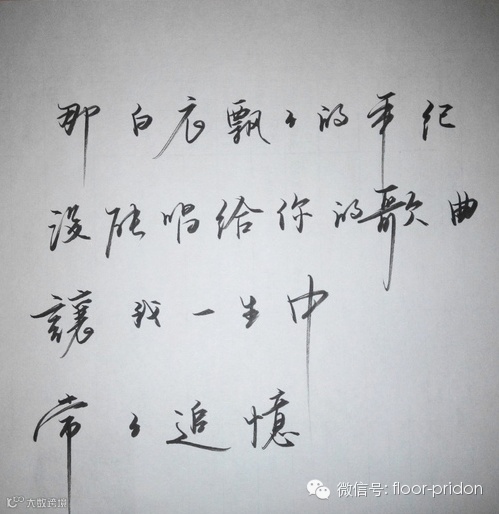 那白衣飘々的年纪
没能唱给你的歌曲
讓我一生中
常々追憶
微信号: floor-pridon
大数跨境